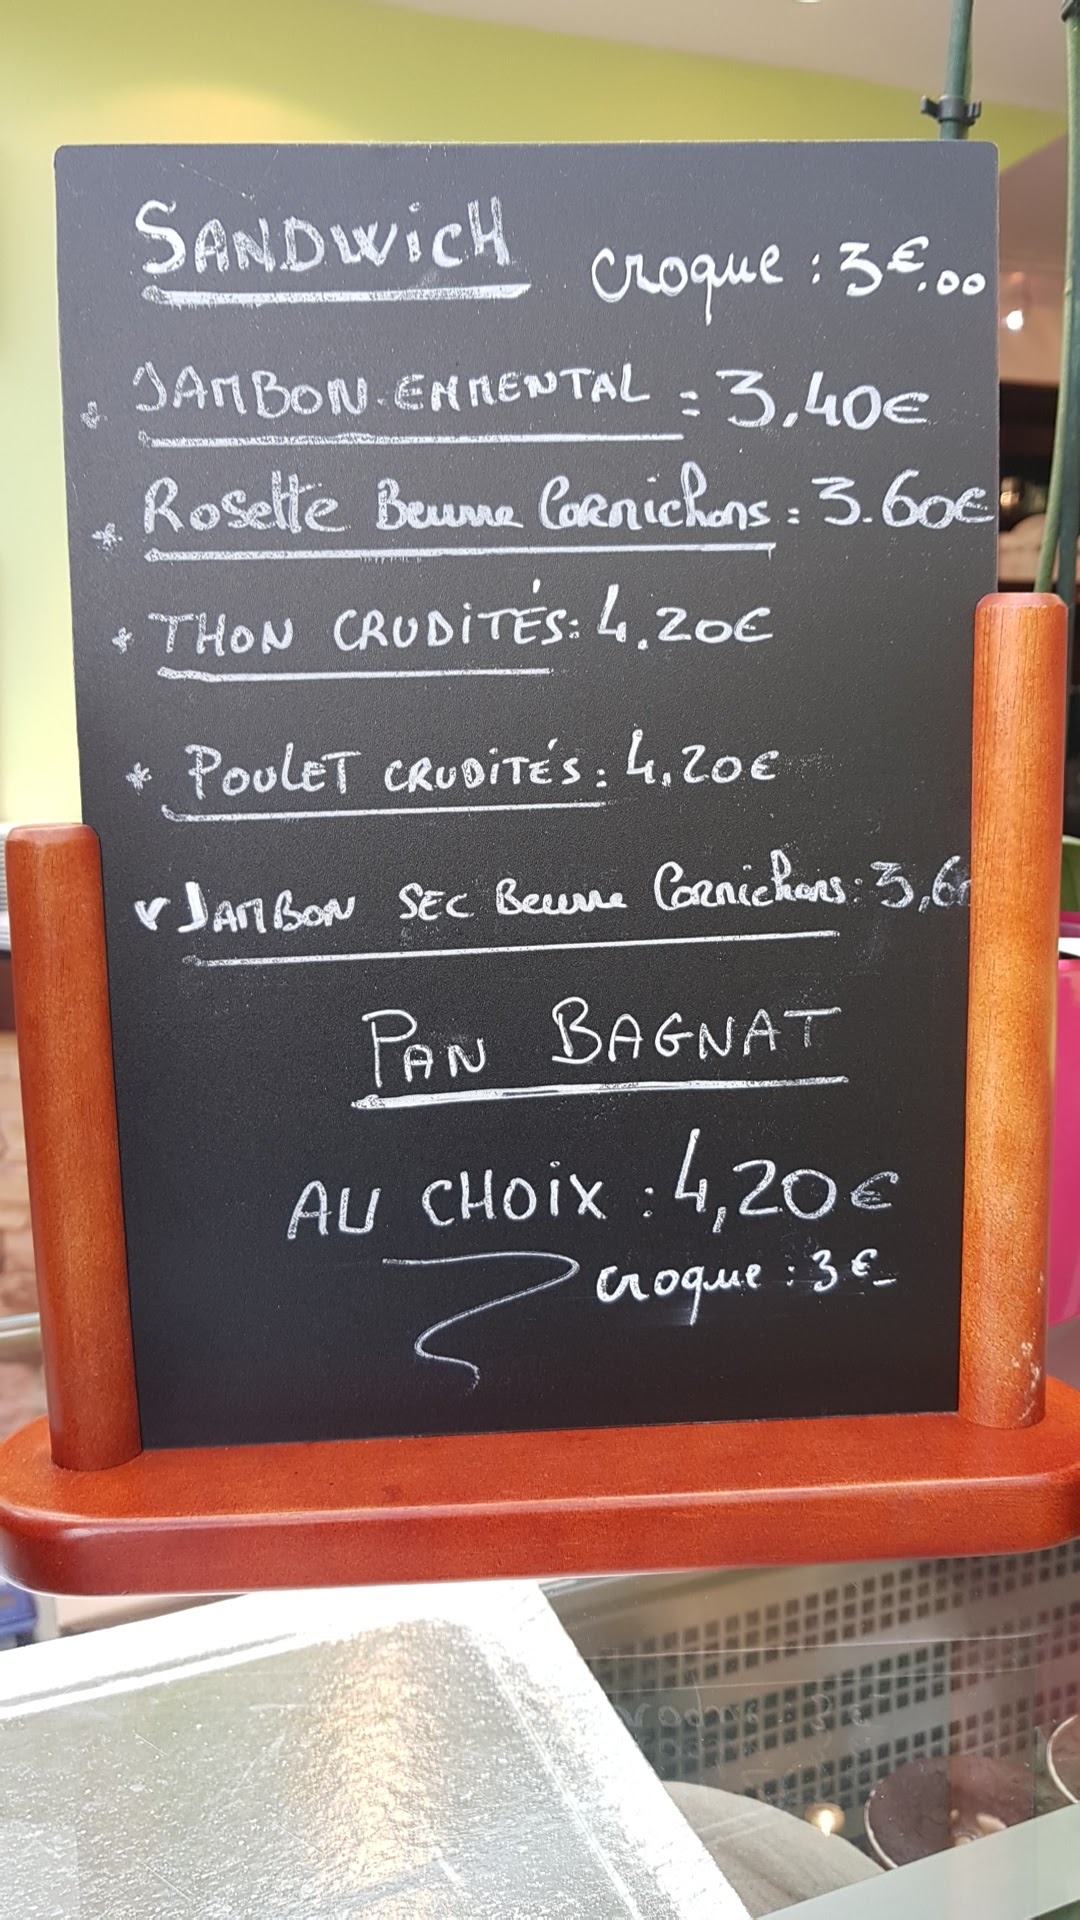 SANDWicH
croque : 3€.00
* JAMBON-EMMENTAL = 3,40€
* Rosette Beurre Cornichons : 3.60€
* THON CRUDiTÉS : 4.20€
* POULET CRUDiTÉS : 4,20€
v JAMBON SEC Beurre Cornichons : 3,6
PAN BAGNAT
AU CHOiX : 4,20€
croque : 3€-